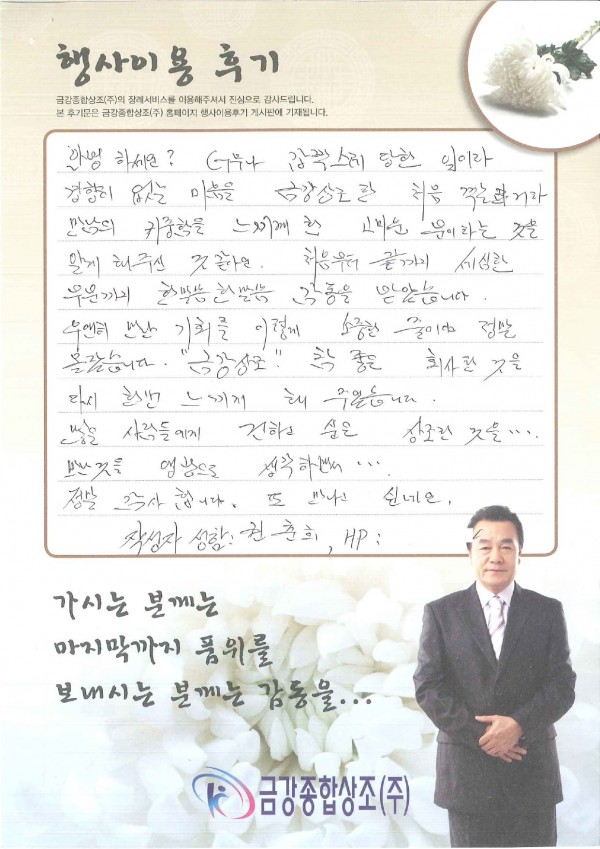 행사이용 후기
금강종합상조(주)의 장례서비스를 이용해주셔서 진심으로 감사드립니다.
본 후기문은 금강종합상조(주) 홈페이지 행사이용후기 게시판에 기재됩니다.
안녕 하세요? 너무나 갑짝스레 당한 일이라
경험이 없는 마음을 금강상조란 처음
만남의 귀중함을 느끼게 한 고마운 분이라는 것을
알게 해주신 것 같아요. 처음부터 끝까지 세심한
부분까지 한말씀 한말씀 감동을 받았습니다.
우연히 만난 기회를 이렇게 소중한 줄이야 정말
몰랐습니다. "금강상조" 참 좋은 회사란 것을
다시 한번 느끼게 해 주었습니다.
많은 사람들에게 전하고 싶은 상조란 것을....
모든것을 생각하면서....
정말 감사 합니다. 또 만나고 싶네요.
작성자 성함: 권춘희, HP:
가시는 분께는
마지막까지 품위를
보내시는 분께는 감동을...
금강종합상조(주)